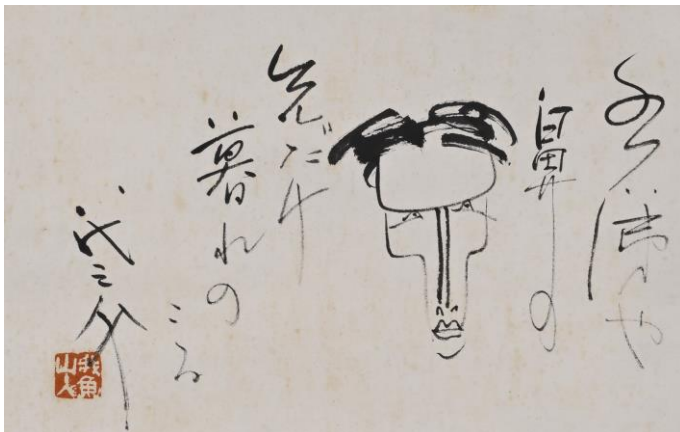 水洟や
鼻の
先だけ
暮れの
こる
龍之介